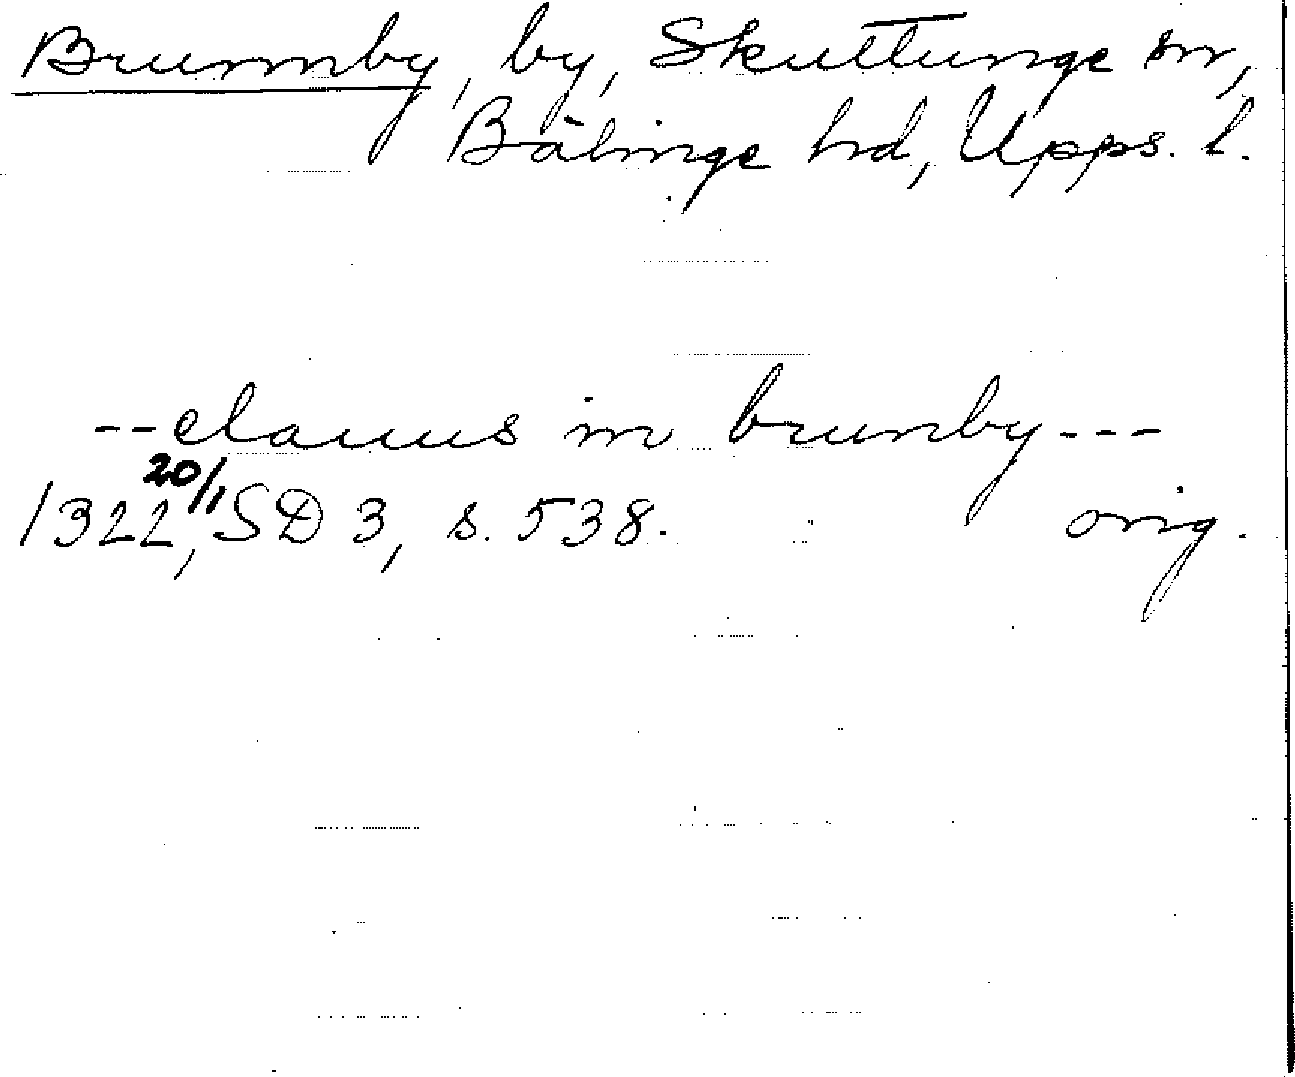 Brunnby, by, Skuttunge sn,
Bälinge hd, Upps. l.
--clauus in brunby---
1322 20/1, SD 3, s. 538. orig.